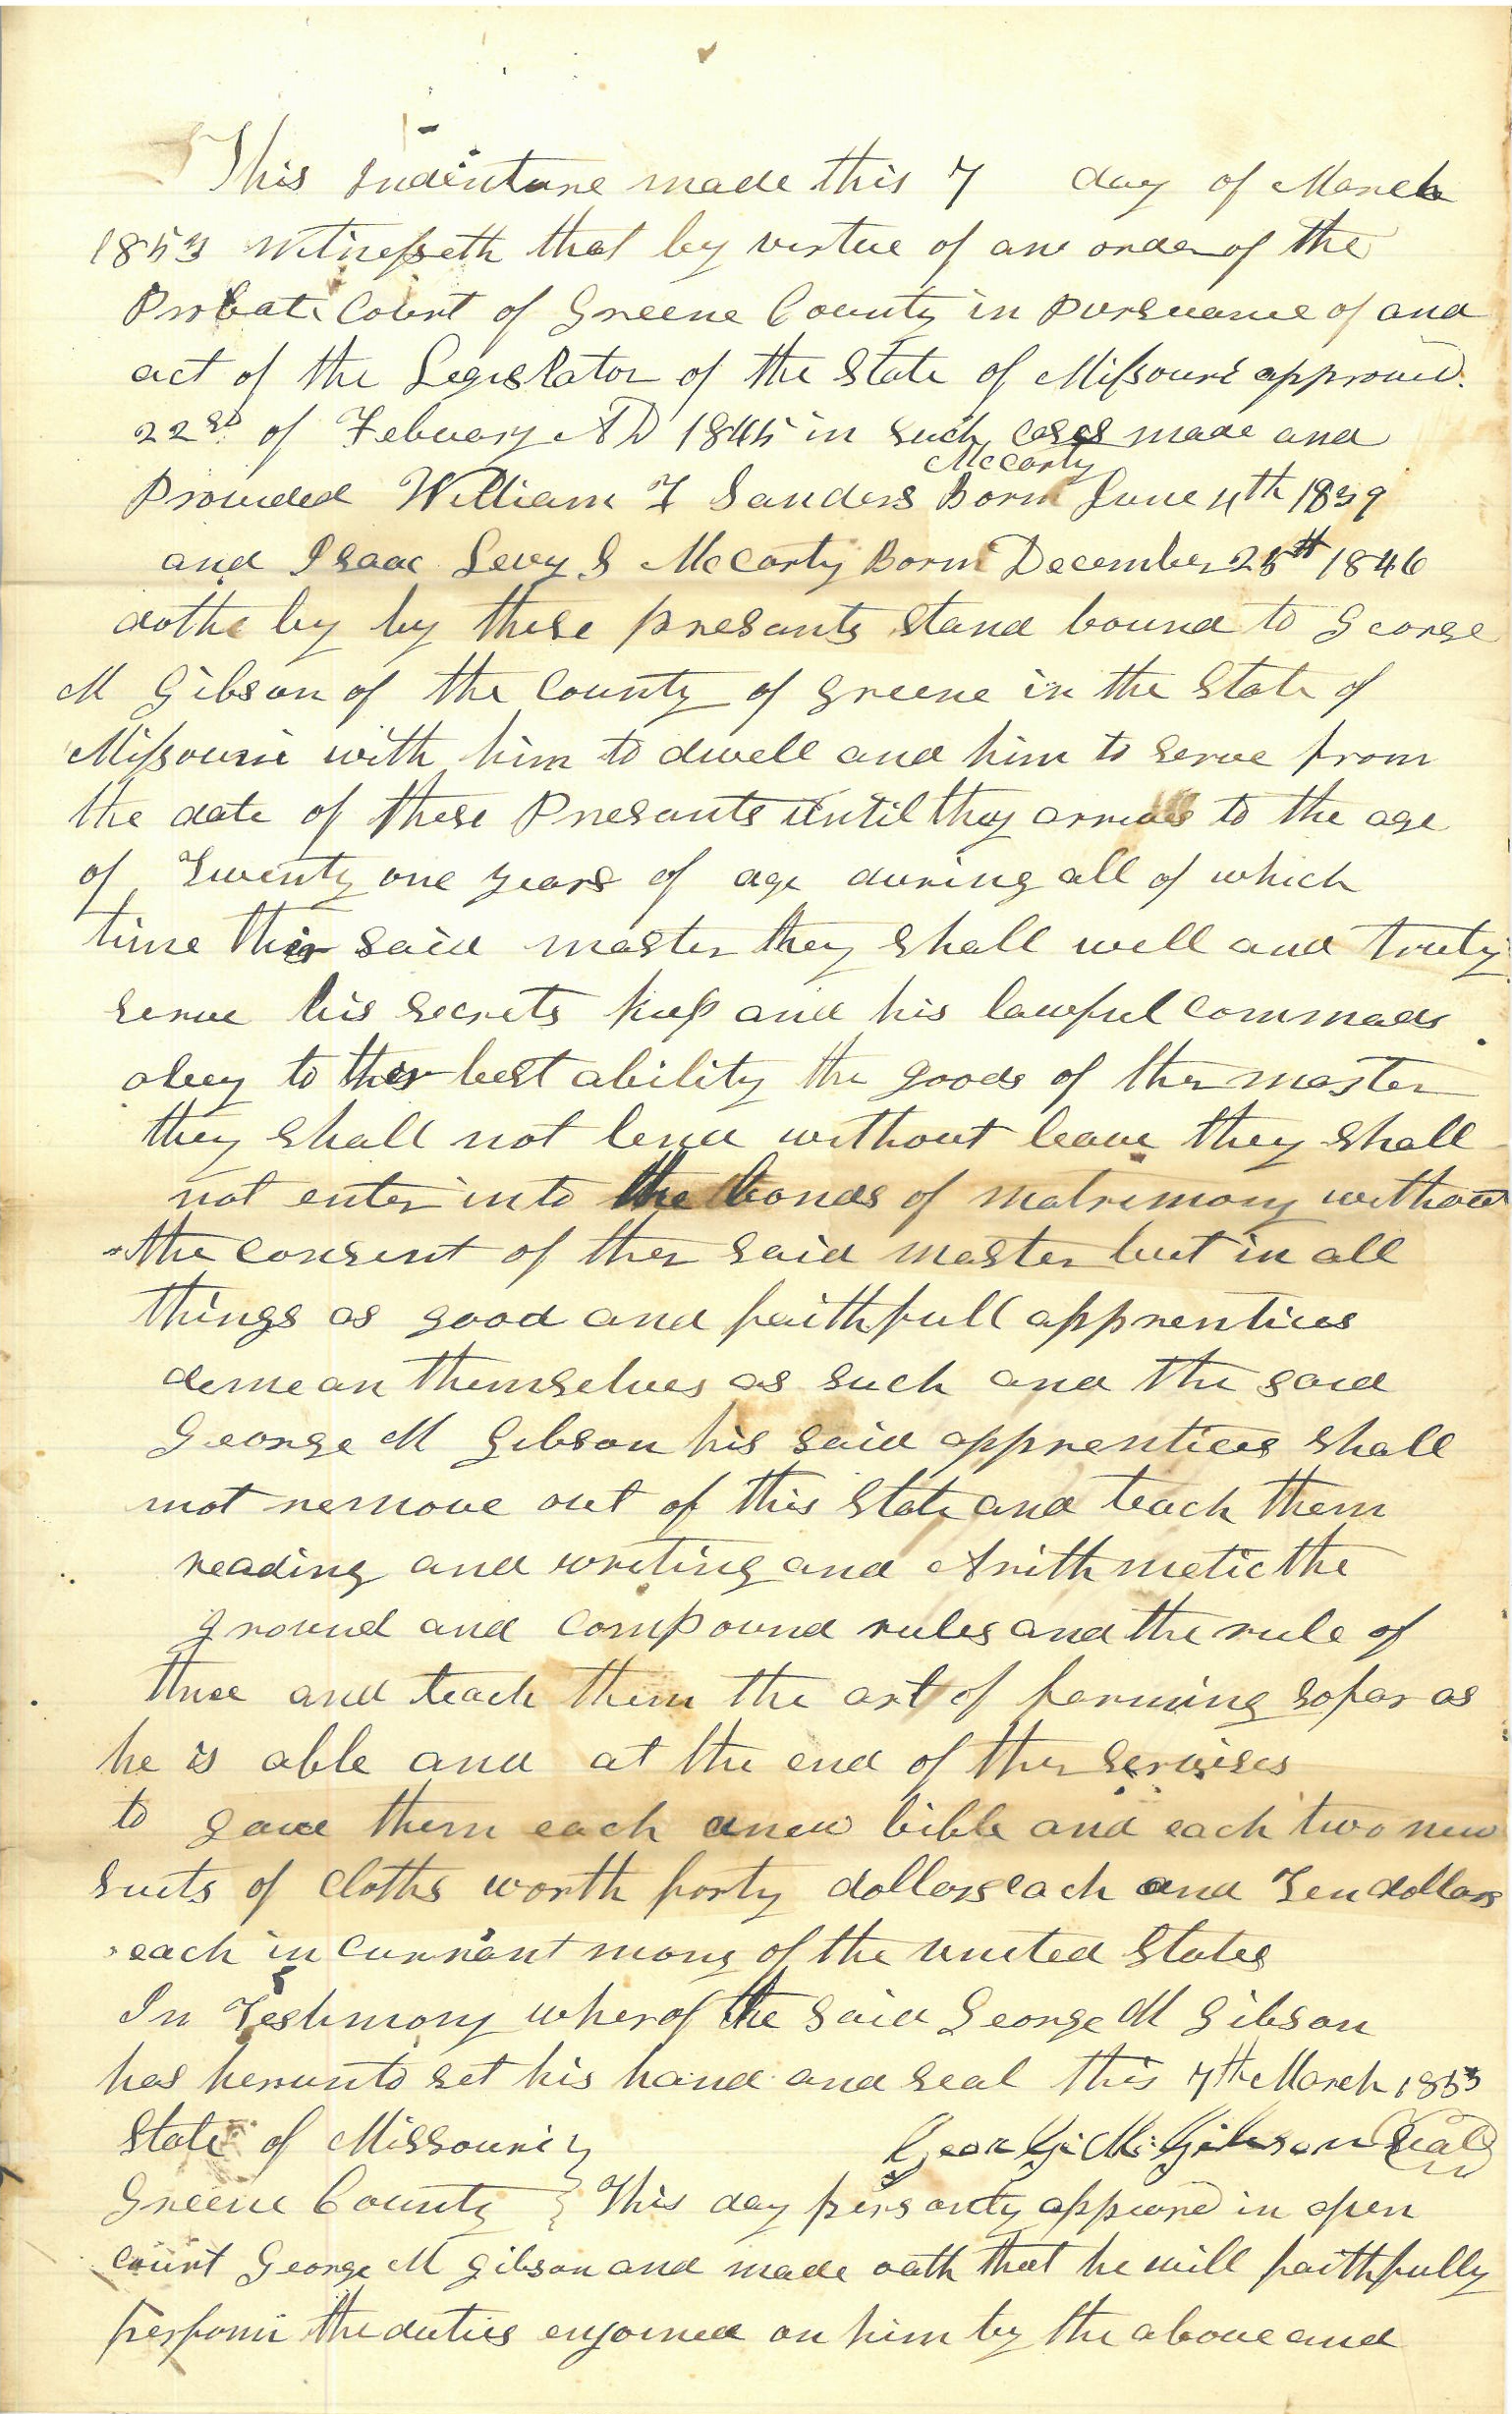 This Indenture made this 7 day of March
1853 Witnesseth that by virtue of an order of the
Probate Court of Greene County in Pursuance of and
act of the Legislator of the State of Missouri approved
22sd of Febuary AD 1845 in such cases made and
McCarty
Provided William F Sanders Born June 4th 1839
and Isaac Levy S McCarty Born December 25th 1846
dothe by by these presants stand bound to George
M Gibson of the County of Greene in the State of
Missourie with him to dwell and him to serve from
the date of these Presants until they arrives to the age
of Twenty one years of age during all of which
time ther said master they shall well and truly
serve his secrets keep and his lawful commads
obey to ther best ability the goods of ther master
they shall not lend without leave they shall
not enter into the bonds of matrimony without
the consent of ther said master but in all
things as good and faithfull apprentices
demean themselves as such and the said
George M Gibson his said apprentices shall
not remove out of this State and teach them
reading and writing and Arithmetic the
ground and compound rules and the rule of
three and teach them the art of farming so far as
he is able and at the end of ther servises
to gave them each a new bible and each two new
suits of cloths worth forty dollars each and Ten dollars
each in currant mony of the united States
In Testimony wherof the said George M Gibson
has herunto set his hand and seal this 7th March 1853
State of Missouri }
George M. Gibson (Seal)
Greene County } This day persondy appeard in open
court George M Gibson and made oath that he will faithfully
perform the duties enjoined on him by the above and